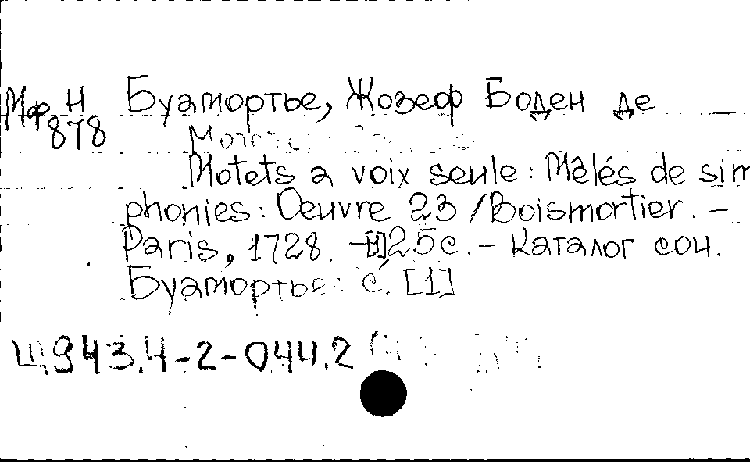 Мф Н Буамортье, Жозеф Боден де
878
Motets a voix seule: Mêlés de sim
phonies: Oeuvre 23 /Boismortier. –
Paris, 1728. – 25 с. – Каталог соч.
Буамортье: с. [1]
Щ943.4-2-044.2